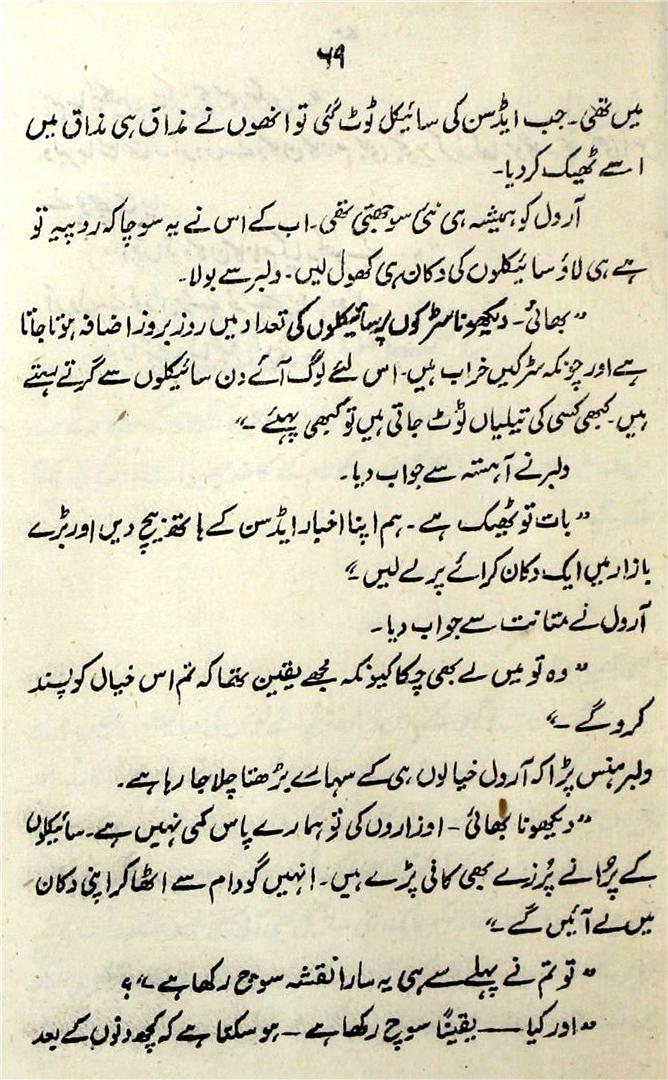 ۶۹
میں تھی۔ جب ایڈسن کی سائیکل ٹوٹ گئی تو انھوں نے مذاق ہی مذاق میں
اسے ٹھیک کر دیا۔
آرول کو ہمیشہ ہی نئی سوجھتی تھی۔ اب کے اس نے یہ سوچا کہ روپیہ تو
ہے ہی لاؤ سائیکلوں کی دکان ہی کھول لیں۔ ولبر سے بولا۔
"بھائی۔ دیکھو نا سڑکوں پر سائیکلوں کی تعداد میں روز بروز اضافہ ہوتا جاتا
ہے اور چونکہ سڑکیں خراب ہیں۔ اس لئے لوگ آئے دن سائیکلوں سے گرتے رہتے
ہیں۔ کبھی کسی کی تیلیاں ٹوٹ جاتی ہیں تو کبھی پہئے۔"
ولبر نے آہستہ سے جواب دیا۔
"بات تو ٹھیک ہے۔ ہم اپنا اخبار ایڈسن کے ہاتھ بیچ دیں اور بڑے
بازار میں ایک دکان کرائے پر لے لیں"
آرول نے متانت سے جواب دیا۔
"وہ تو میں لے بھی چکا کیونکہ مجھے یقین تھا کہ تم اس خیال کو پسند
کرو گے۔"
ولبر ہنس پڑا کہ آرول خیالوں ہی کے سہارے بڑھتا چلا جا رہا ہے۔
"دیکھو نا بھائی۔ اوزاروں کی تو ہمارے پاس کمی نہیں ہے۔ سائیکلوں
کے پرُانے پُرزے بھی کافی پڑے ہیں۔ انہیں گودام سے اٹھا کر اپنی دکان
میں لے آئیں گے۔"
"تو تم نے پہلے سے ہی یہ سارا نقشہ سوچ رکھا ہے۔"؟
"اور کیا — یقینًا سوچ رکھا ہے — ہو سکتا ہے کہ کچھ دنوں کے بعد